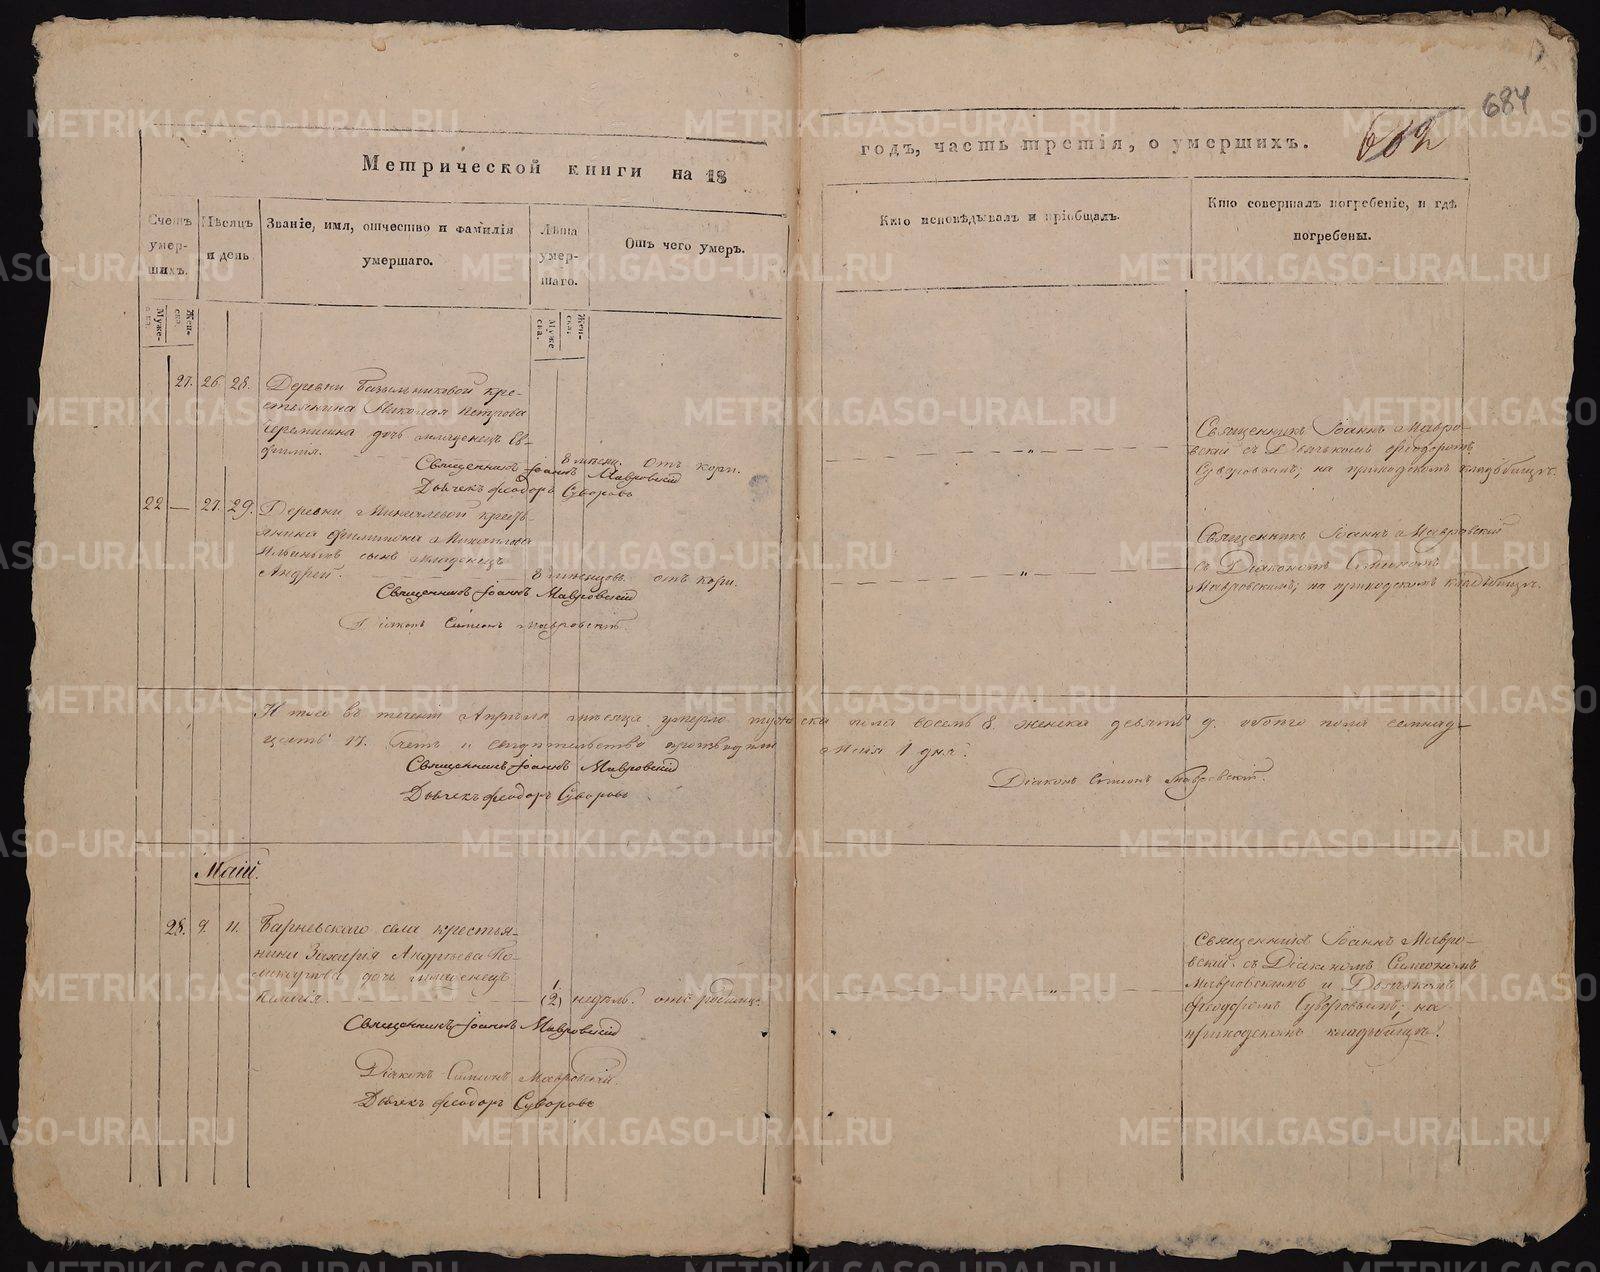 684
602
Метрической книги на 18
годъ, часть третія, о умершихъ.
Счетъ умер-шихъ.
Мѣсяцъ и день
Званіе, имя, отчество и фамилія умершаго.
Лѣта умер-шаго.
Отъ чего умеръ.
Кто исповѣдывалъ и пріобщалъ.
Кто совершалъ погребеніе, и гдѣ погребены.
Муже-ска.
Жен-ска.
Муже ска.
Жен-ска.
27. 26. 28. Деревни кре-
стьянина Николая Петрова
дочь младенецъ Ев-
фимія.
8 отъ кори.
Священникъ Іоаннъ Мавровскій
Дьячекъ Феодоръ Суворовъ
Священникъ Іоаннъ Мавро-
вскій съ Дьячкомъ Феодоромъ
Суворовымъ; на приходскомъ кладбищѣ.
22 — 27. 29. Деревни крестъ-
янина Филимона Михайлова
сынъ младенецъ
Андрей.
8 мѣсяцовъ. отъ кори.
Священникъ Іоаннъ Мавровскій
Діаконъ Симеонъ Мавровскій.
Священникъ Іоаннъ Мавровскій
съ Діакономъ Симеономъ
Мавровскимъ; на приходскомъ кладбищѣ.
Итого въ теченіи Апрѣля мѣсяца умерло мужеска пола восемь 8. женска девять 9. обоего пола семнад-
цать 17. и свидѣтельство производили Маія 1 дня.
Священникъ Іоаннъ Мавровскій
Діаконъ Симеонъ Мавровскій.
Дьячекъ Феодоръ Суворовъ
Маій.
28. 9. 11. Барневскаго села крестья-
нина Захарія Андреева По-
дочь младенецъ
(2) недѣль. отъ родимца.
Священникъ Іоаннъ Мавровскій
Діаконъ Симеонъ Мавровскій.
Дьячекъ Феодоръ Суворовъ
Священникъ Іоаннъ Мавро-
вскій съ Діакономъ Симеономъ
Мавровскимъ и Дьячкомъ
Феодоромъ Суворовымъ; на
приходскомъ кладбищѣ.
METRIKI.GASO-URAL.RU